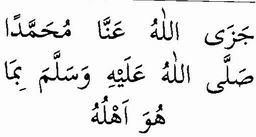 جَزَى اللهُ عَنَّا مُحَمَّدًا
صَلَّى اللهُ عَلَيْهِ وَسَلَّمَ بِمَا
هُوَ اَهْلُهُ